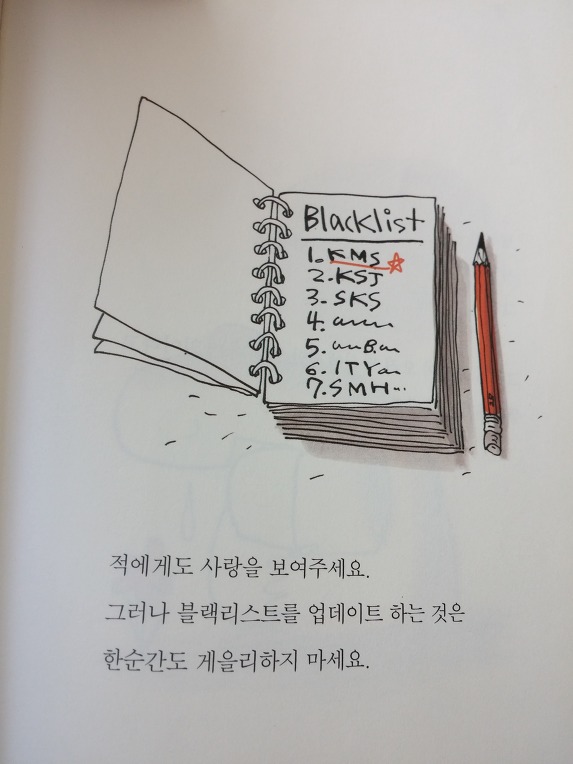 Blacklist
1. KMS
2. KSJ
3. SKS
4.
5.
6. ITY
7. SMH...
적에게도 사랑을 보여주세요.
그러나 블랙리스트를 업데이트 하는 것은
한순간도 게을리하지 마세요.